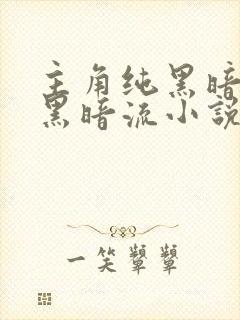 主角纯黑暗
黑暗流小說
一笑颦颦